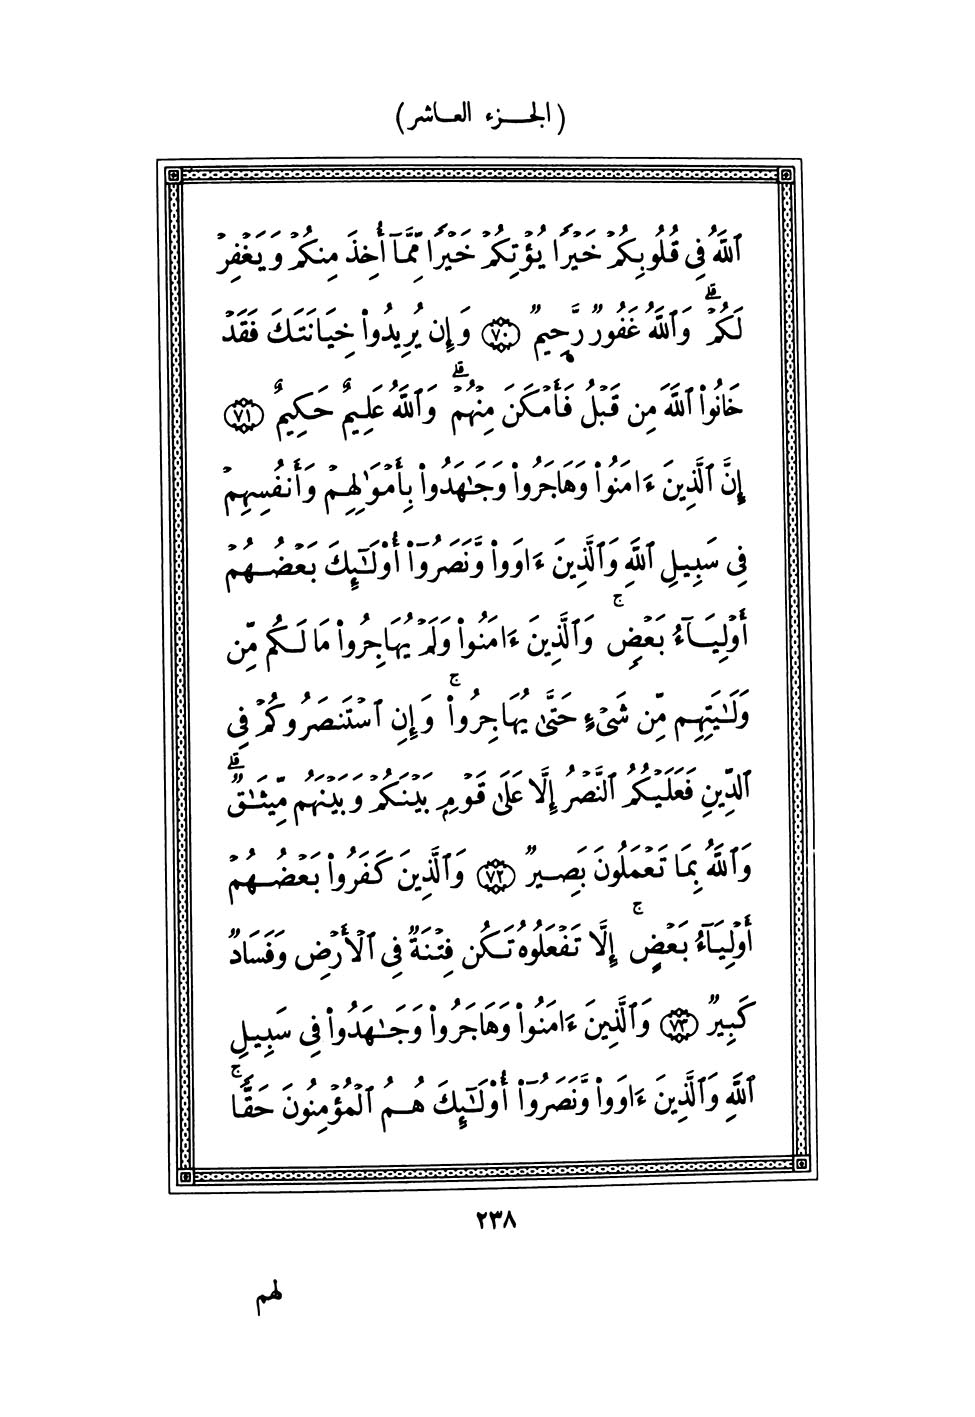 (الجزء العاشر)
ٱللَّهُ فِى قُلُوبِكُمْ خَيْرًا يُؤْتِكُمْ خَيْرًا مِّمَّآ أُخِذَ مِنكُمْ وَيَغْفِرْ
لَكُمْ ۗ وَٱللَّهُ غَفُورٌ رَّحِيمٌ ﴿٧٠﴾ وَإِن يُرِيدُوا۟ خِيَانَتَكَ فَقَدْ
خَانُوا۟ ٱللَّهَ مِن قَبْلُ فَأَمْكَنَ مِنْهُمْ ۗ وَٱللَّهُ عَلِيمٌ حَكِيمٌ ﴿٧١﴾
إِنَّ ٱلَّذِينَ ءَامَنُوا۟ وَهَاجَرُوا۟ وَجَـٰهَدُوا۟ بِأَمْوَٰلِهِمْ وَأَنفُسِهِمْ
فِى سَبِيلِ ٱللَّهِ وَٱلَّذِينَ ءَاوَوا۟ وَّنَصَرُوٓا۟ أُو۟لَـٰٓئِكَ بَعْضُهُمْ
أَوْلِيَآءُ بَعْضٍ ۚ وَٱلَّذِينَ ءَامَنُوا۟ وَلَمْ يُهَاجِرُوا۟ مَا لَكُم مِّن
وَلَـٰيَتِهِم مِّن شَىْءٍ حَتَّىٰ يُهَاجِرُوا۟ ۚ وَإِنِ ٱسْتَنصَرُوكُمْ فِى
ٱلدِّينِ فَعَلَيْكُمُ ٱلنَّصْرُ إِلَّا عَلَىٰ قَوْمٍ بَيْنَكُمْ وَبَيْنَهُم مِّيثَـٰقٌ ۗ
وَٱللَّهُ بِمَا تَعْمَلُونَ بَصِيرٌ ﴿٧٢﴾ وَٱلَّذِينَ كَفَرُوا۟ بَعْضُهُمْ
أَوْلِيَآءُ بَعْضٍ ۚ إِلَّا تَفْعَلُوهُ تَكُن فِتْنَةٌ فِى ٱلْأَرْضِ وَفَسَادٌ
كَبِيرٌ ﴿٧٣﴾ وَٱلَّذِينَ ءَامَنُوا۟ وَهَاجَرُوا۟ وَجَـٰهَدُوا۟ فِى سَبِيلِ
ٱللَّهِ وَٱلَّذِينَ ءَاوَوا۟ وَّنَصَرُوٓا۟ أُو۟لَـٰٓئِكَ هُمُ ٱلْمُؤْمِنُونَ حَقًّا ۚ
٢٣٨
لهم